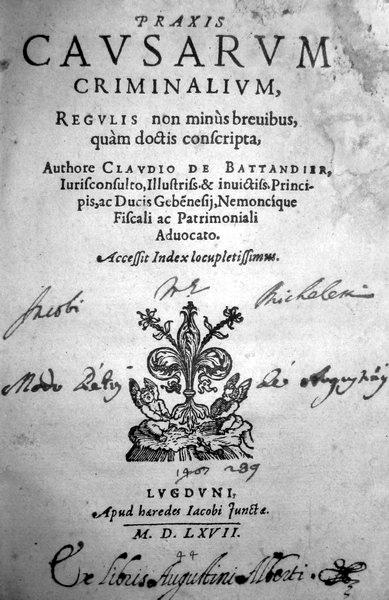 PRAXIS
CAVSARVM
CRIMINALIVM,
REGVLIS non minùs breuibus,
quàm doctis conscripta,
Authore CLAVDIO DE BATTANDIER,
Iurisconsulto, Illustriss. & inuictiss. Princi-
pis, ac Ducis Gebēnesij, Nemoncíque
Fiscali ac Patrimoniali
Aduocato.
Accessit Index locupletissimus.
Jacobi
Modo
LVGDVNI,
Apud hæredes Iacobi Junctæ.
M. D. LXVII.
44
Ex libris Augustini Alberti.